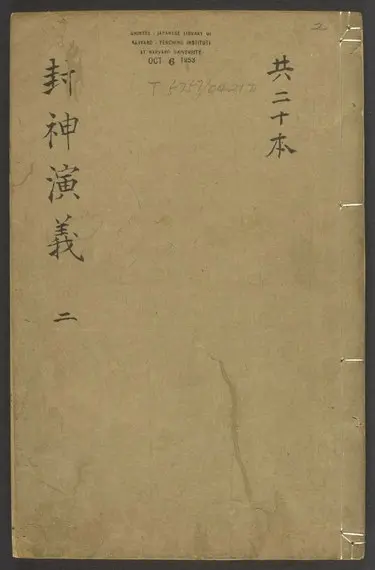 CHINESE - JAPANESE LIBRARY OF
HARVARD - YENCHING INSTITUTE
AT HARVARD UNIVERSITY
OCT 6 1953
2
共二十本
封神演義 二